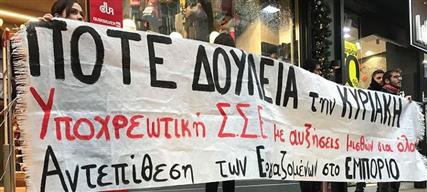 ΠΟΤΕ ΔΟΥΛΕΙΑ την ΚΥΡΙΑΚΗ
Υποχρεωτική Σ.Σ.Ε με αυξήσεις μισθών για όλο
Αντεπίθεση των Εργαζομένων στο ΕΜΠΟΡΙΟ